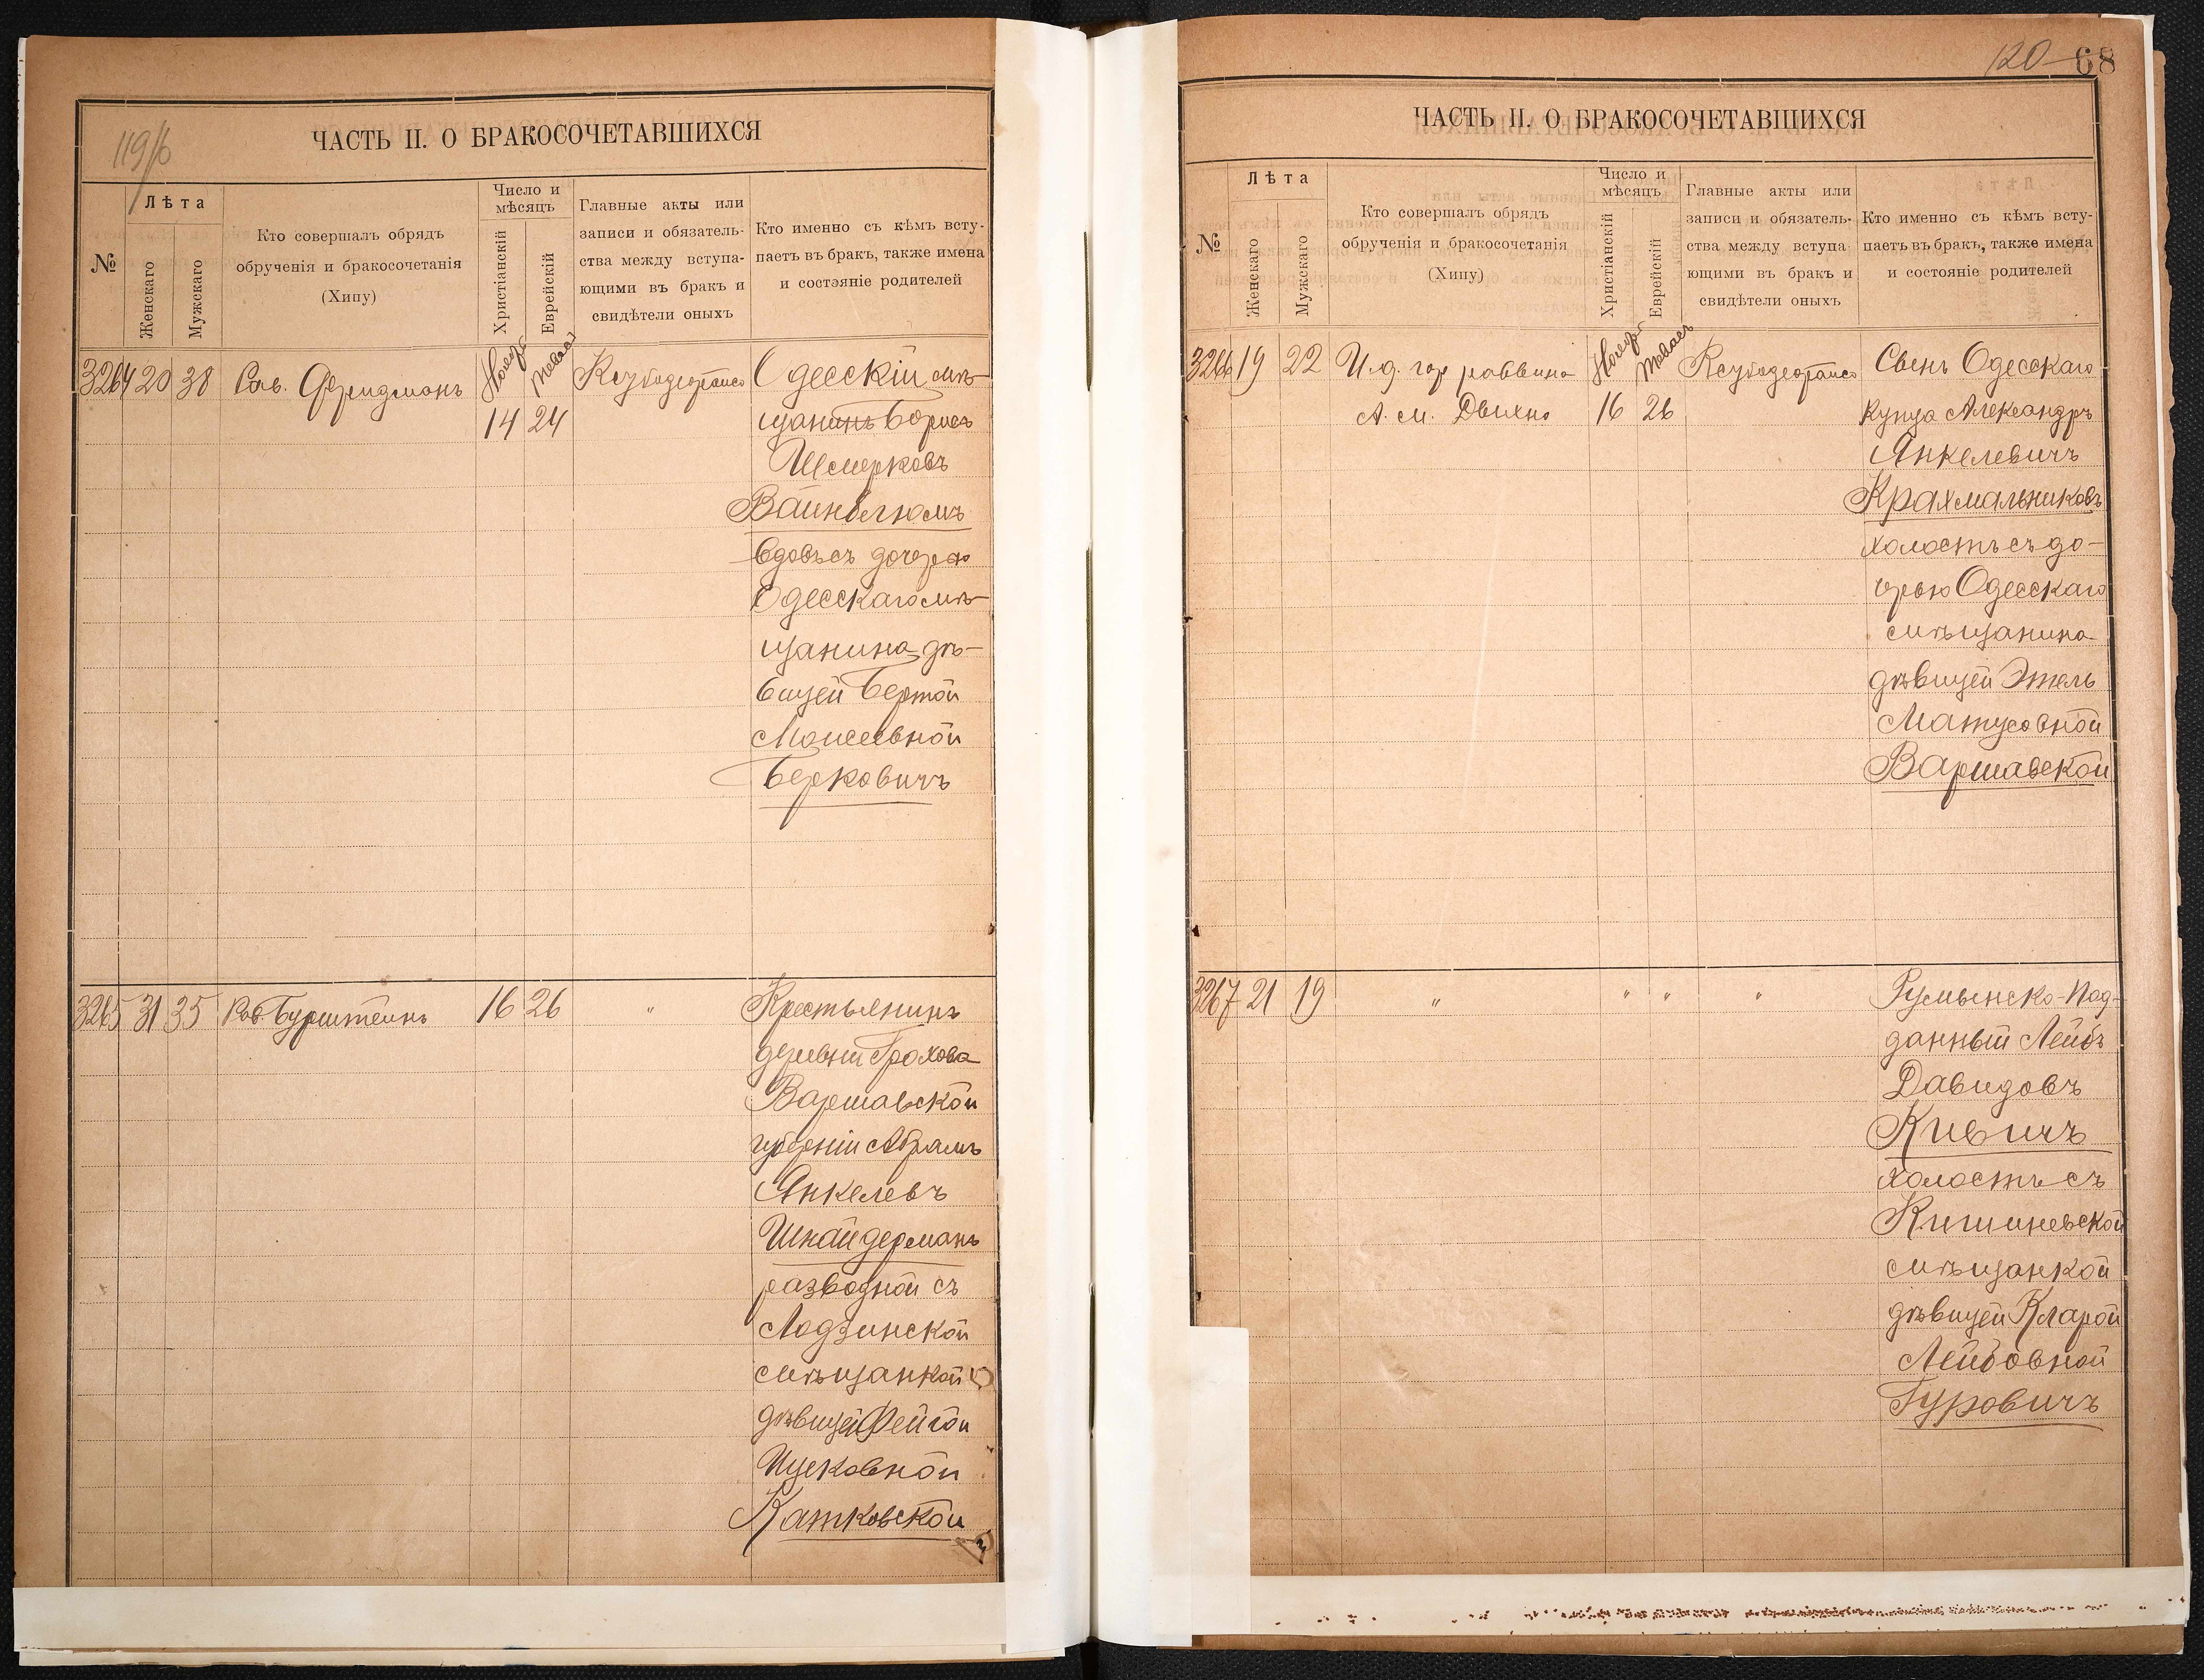 119/б
ЧАСТЬ II. О БРАКОСОЧЕТАВШИХСЯ
№
Лѣта
Женскаго
Мужскаго
Кто совершалъ обрядъ
обрученія и бракосочетанія
(Хипу)
Число и
мѣсяцъ
Христіанскій
Еврейскій
Главные акты или
записи и обязатель-
ства между вступа-
ющими въ бракъ и
свидѣтели оныхъ
Кто именно съ кѣмъ всту-
паетъ въ бракъ, также имена
и состояніе родителей
3264 20 38 Рав. Фридманъ
14 24
Одесскій мѣ-
щанинъ Борисъ
Шмерковъ
Вайнблюмъ
вдовъ съ дочерью
Одесскаго мѣ-
щанина дѣ-
вицей Бертой
Моисеевной
Берковичъ
3265 31 35 Рав. Бурштейнъ 16 26 "
Крестьянинъ
деревни Грохова
Варшавской
губерніи Абрамъ
Янкелевъ
Шнайдерманъ
разводной съ
Лодзинской
мѣщанкой
дѣвицей Фейгой
Ицковной
Катковской
120 68
ЧАСТЬ II. О БРАКОСОЧЕТАВШИХСЯ
№
Лѣта
Женскаго
Мужскаго
Кто совершалъ обрядъ
обрученія и бракосочетанія
(Хипу)
Число и
мѣсяцъ
Христіанскій
Еврейскій
Главные акты или
записи и обязатель-
ства между вступа-
ющими въ бракъ и
свидѣтели оныхъ
Кто именно съ кѣмъ всту-
паетъ въ бракъ, также имена
и состояніе родителей
3266 19 22 И.д. гор раввина
А. М. Дыхно 16 26
Сынъ Одесскаго
купца Александръ
Янкелевичъ
Крахмальниковъ
холостъ съ до-
черью Одесскаго
мѣщанина
дѣвицей Этель
Матусовной
Варшавской
3267 21 19 " " " "
Румынско-Под-
данный Лейбъ
Давидовъ
Кивичъ
холостъ съ
Кишиневской
мѣщанкой
дѣвицей Кларой
Лейбовной
Гуровичъ